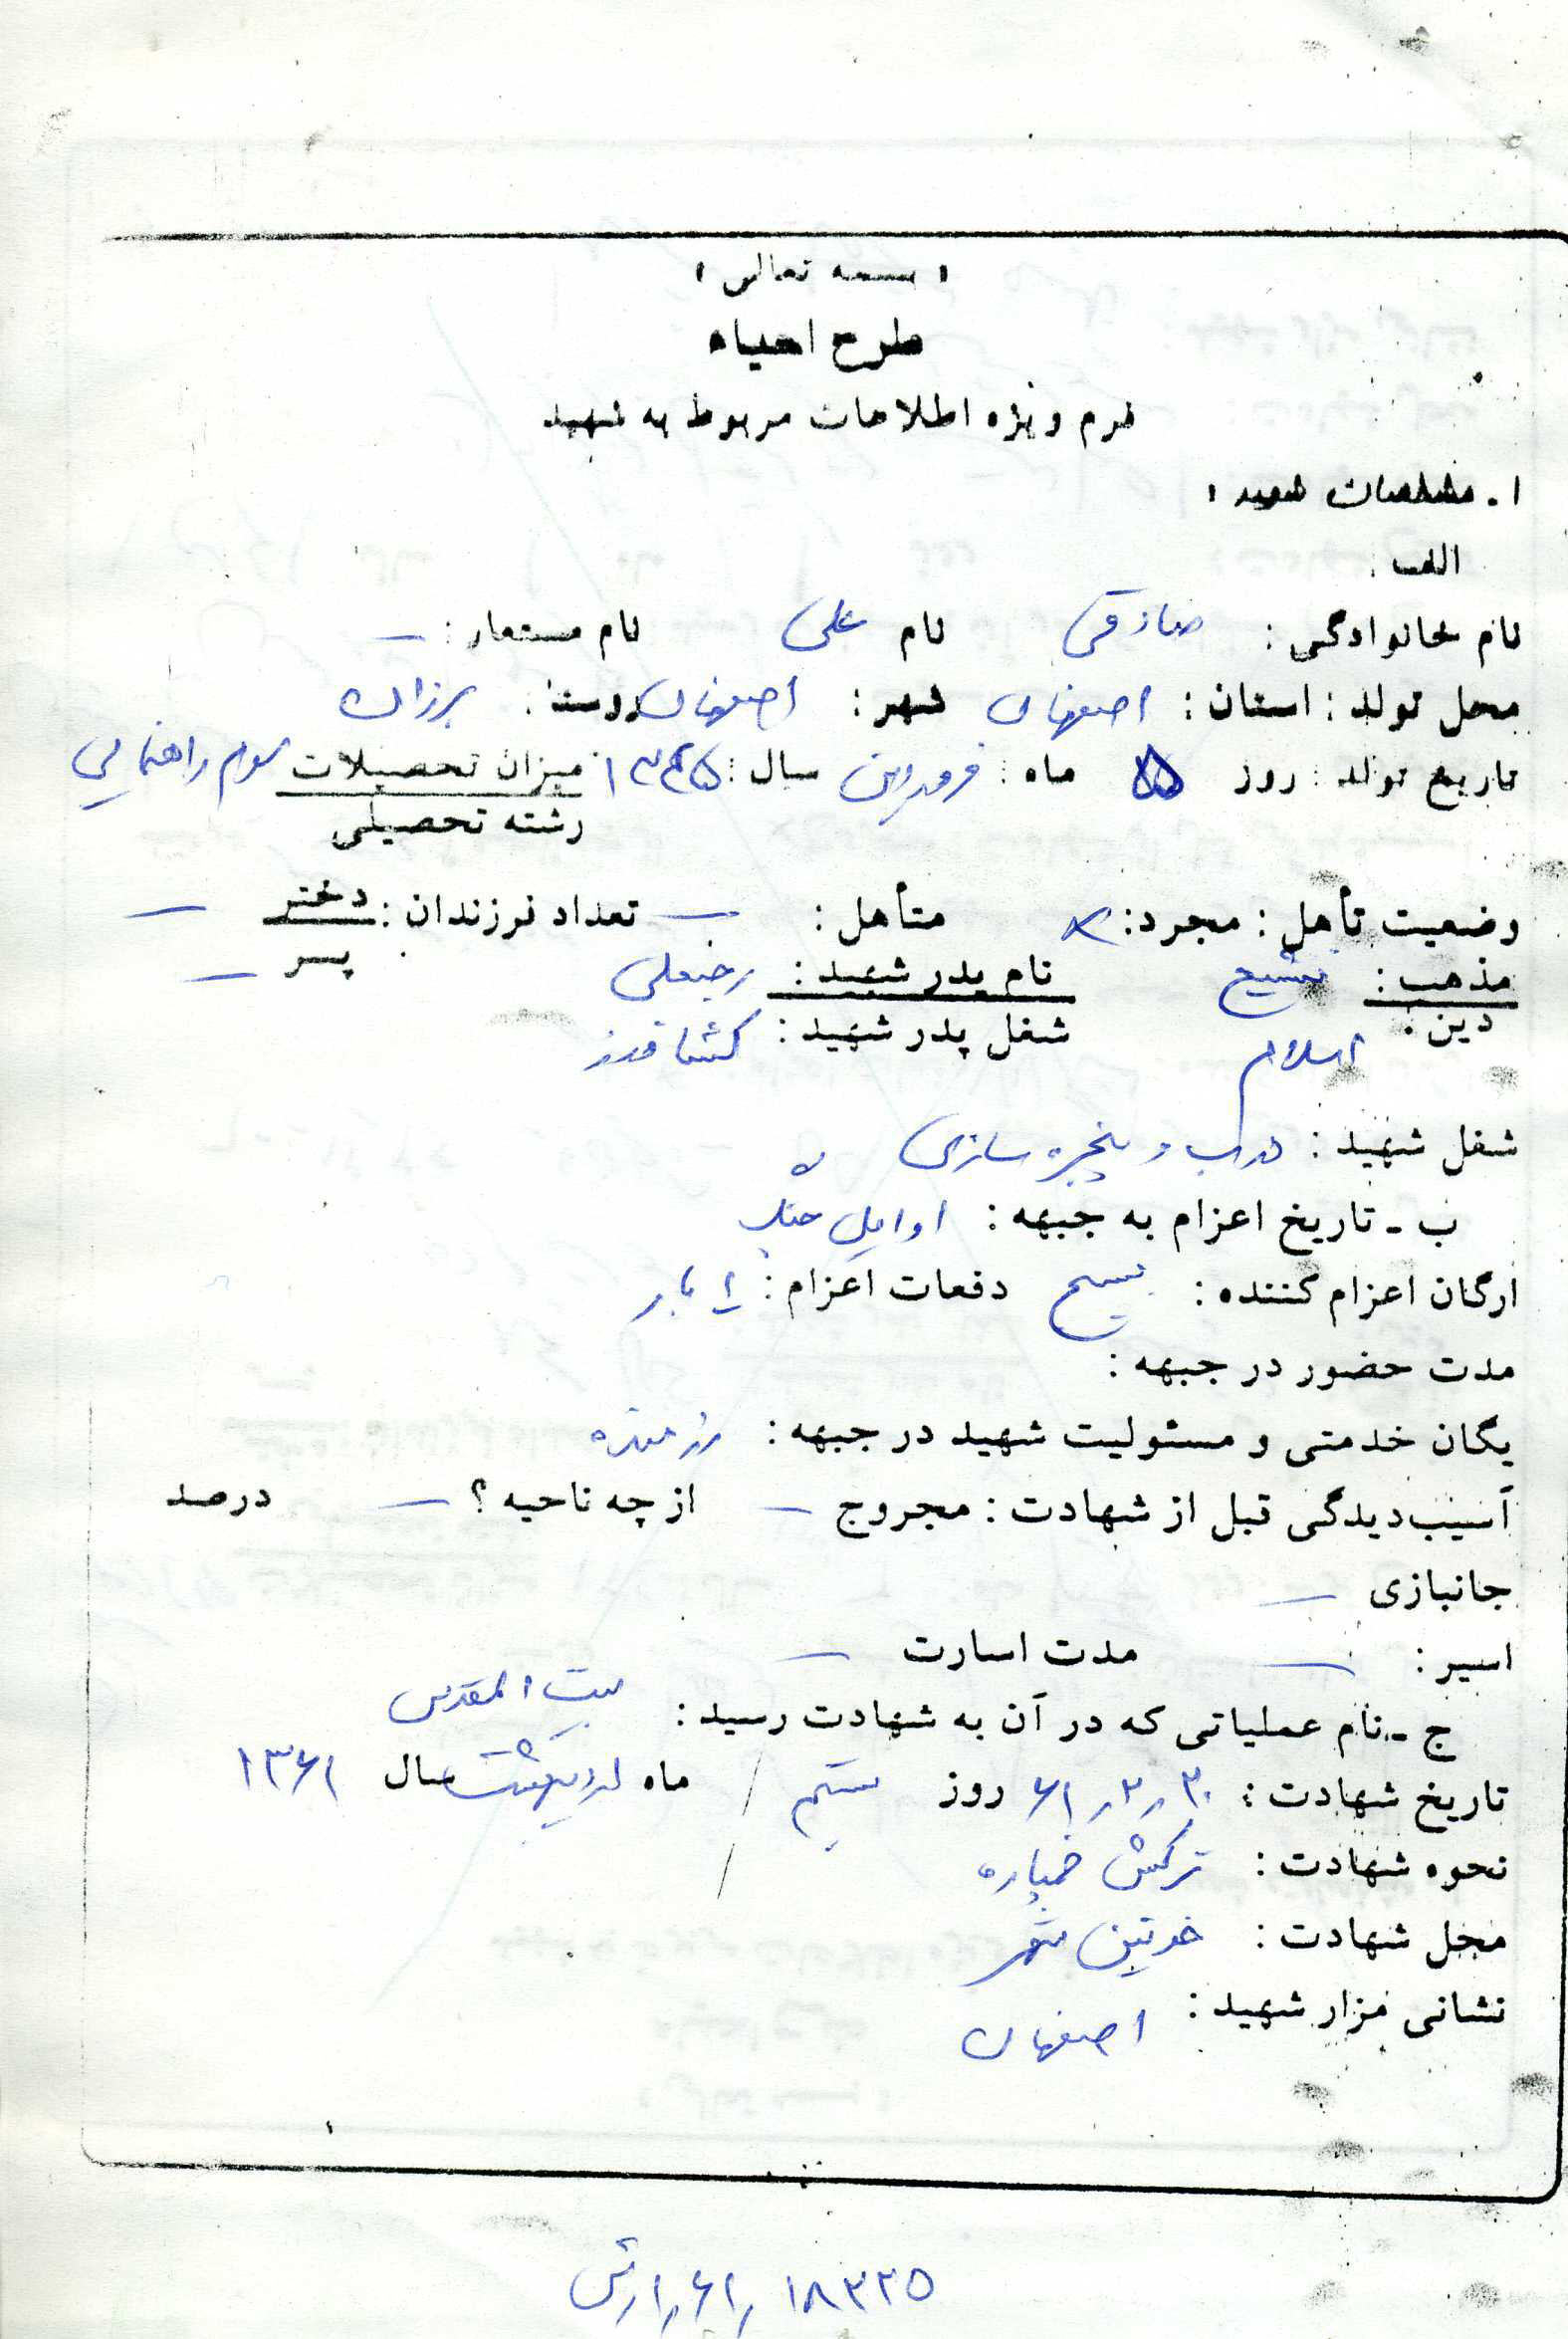 « بسمه تعالی »
طرح احیاء
فرم ویژه اطلاعات مربوط به شهید
۱. مشخصات شهید :
الف :
نام خانوادگی : صادقی نام علی نام مستعار : —
محل تولد : استان : اصفهان شهر : اصفهان روستا : برزان
تاریخ تولد : روز ۵ ماه : فروردین سال : ۱۳۴۵ میزان تحصیلات سوم راهنمایی
رشته تحصیلی
وضعیت تأهل : مجرد : × متأهل : — تعداد فرزندان : دختر —
پسر —
مذهب : تشیع نام پدر شهید : رجبعلی
دین : اسلام شغل پدر شهید : کشاورز
شغل شهید : درب و پنجره سازی
ب ـ تاریخ اعزام به جبهه : اوایل جنگ
ارگان اعزام کننده : بسیج دفعات اعزام : بار
مدت حضور در جبهه :
یگان خدمتی و مسئولیت شهید در جبهه : رزمنده
آسیب‌دیدگی قبل از شهادت : مجروح — از چه ناحیه ؟ — درصد
جانبازی —
اسیر : — مدت اسارت —
ج ـ نام عملیاتی که در آن به شهادت رسید : بیت المقدس
تاریخ شهادت : ۶۱٫۲٫۲۰ روز بیستم ماه اردیبهشت سال ۱۳۶۱
نحوه شهادت : ترکش خمپاره
محل شهادت : خونین شهر
نشانی مزار شهید : اصفهان
۱۸۳۲۵